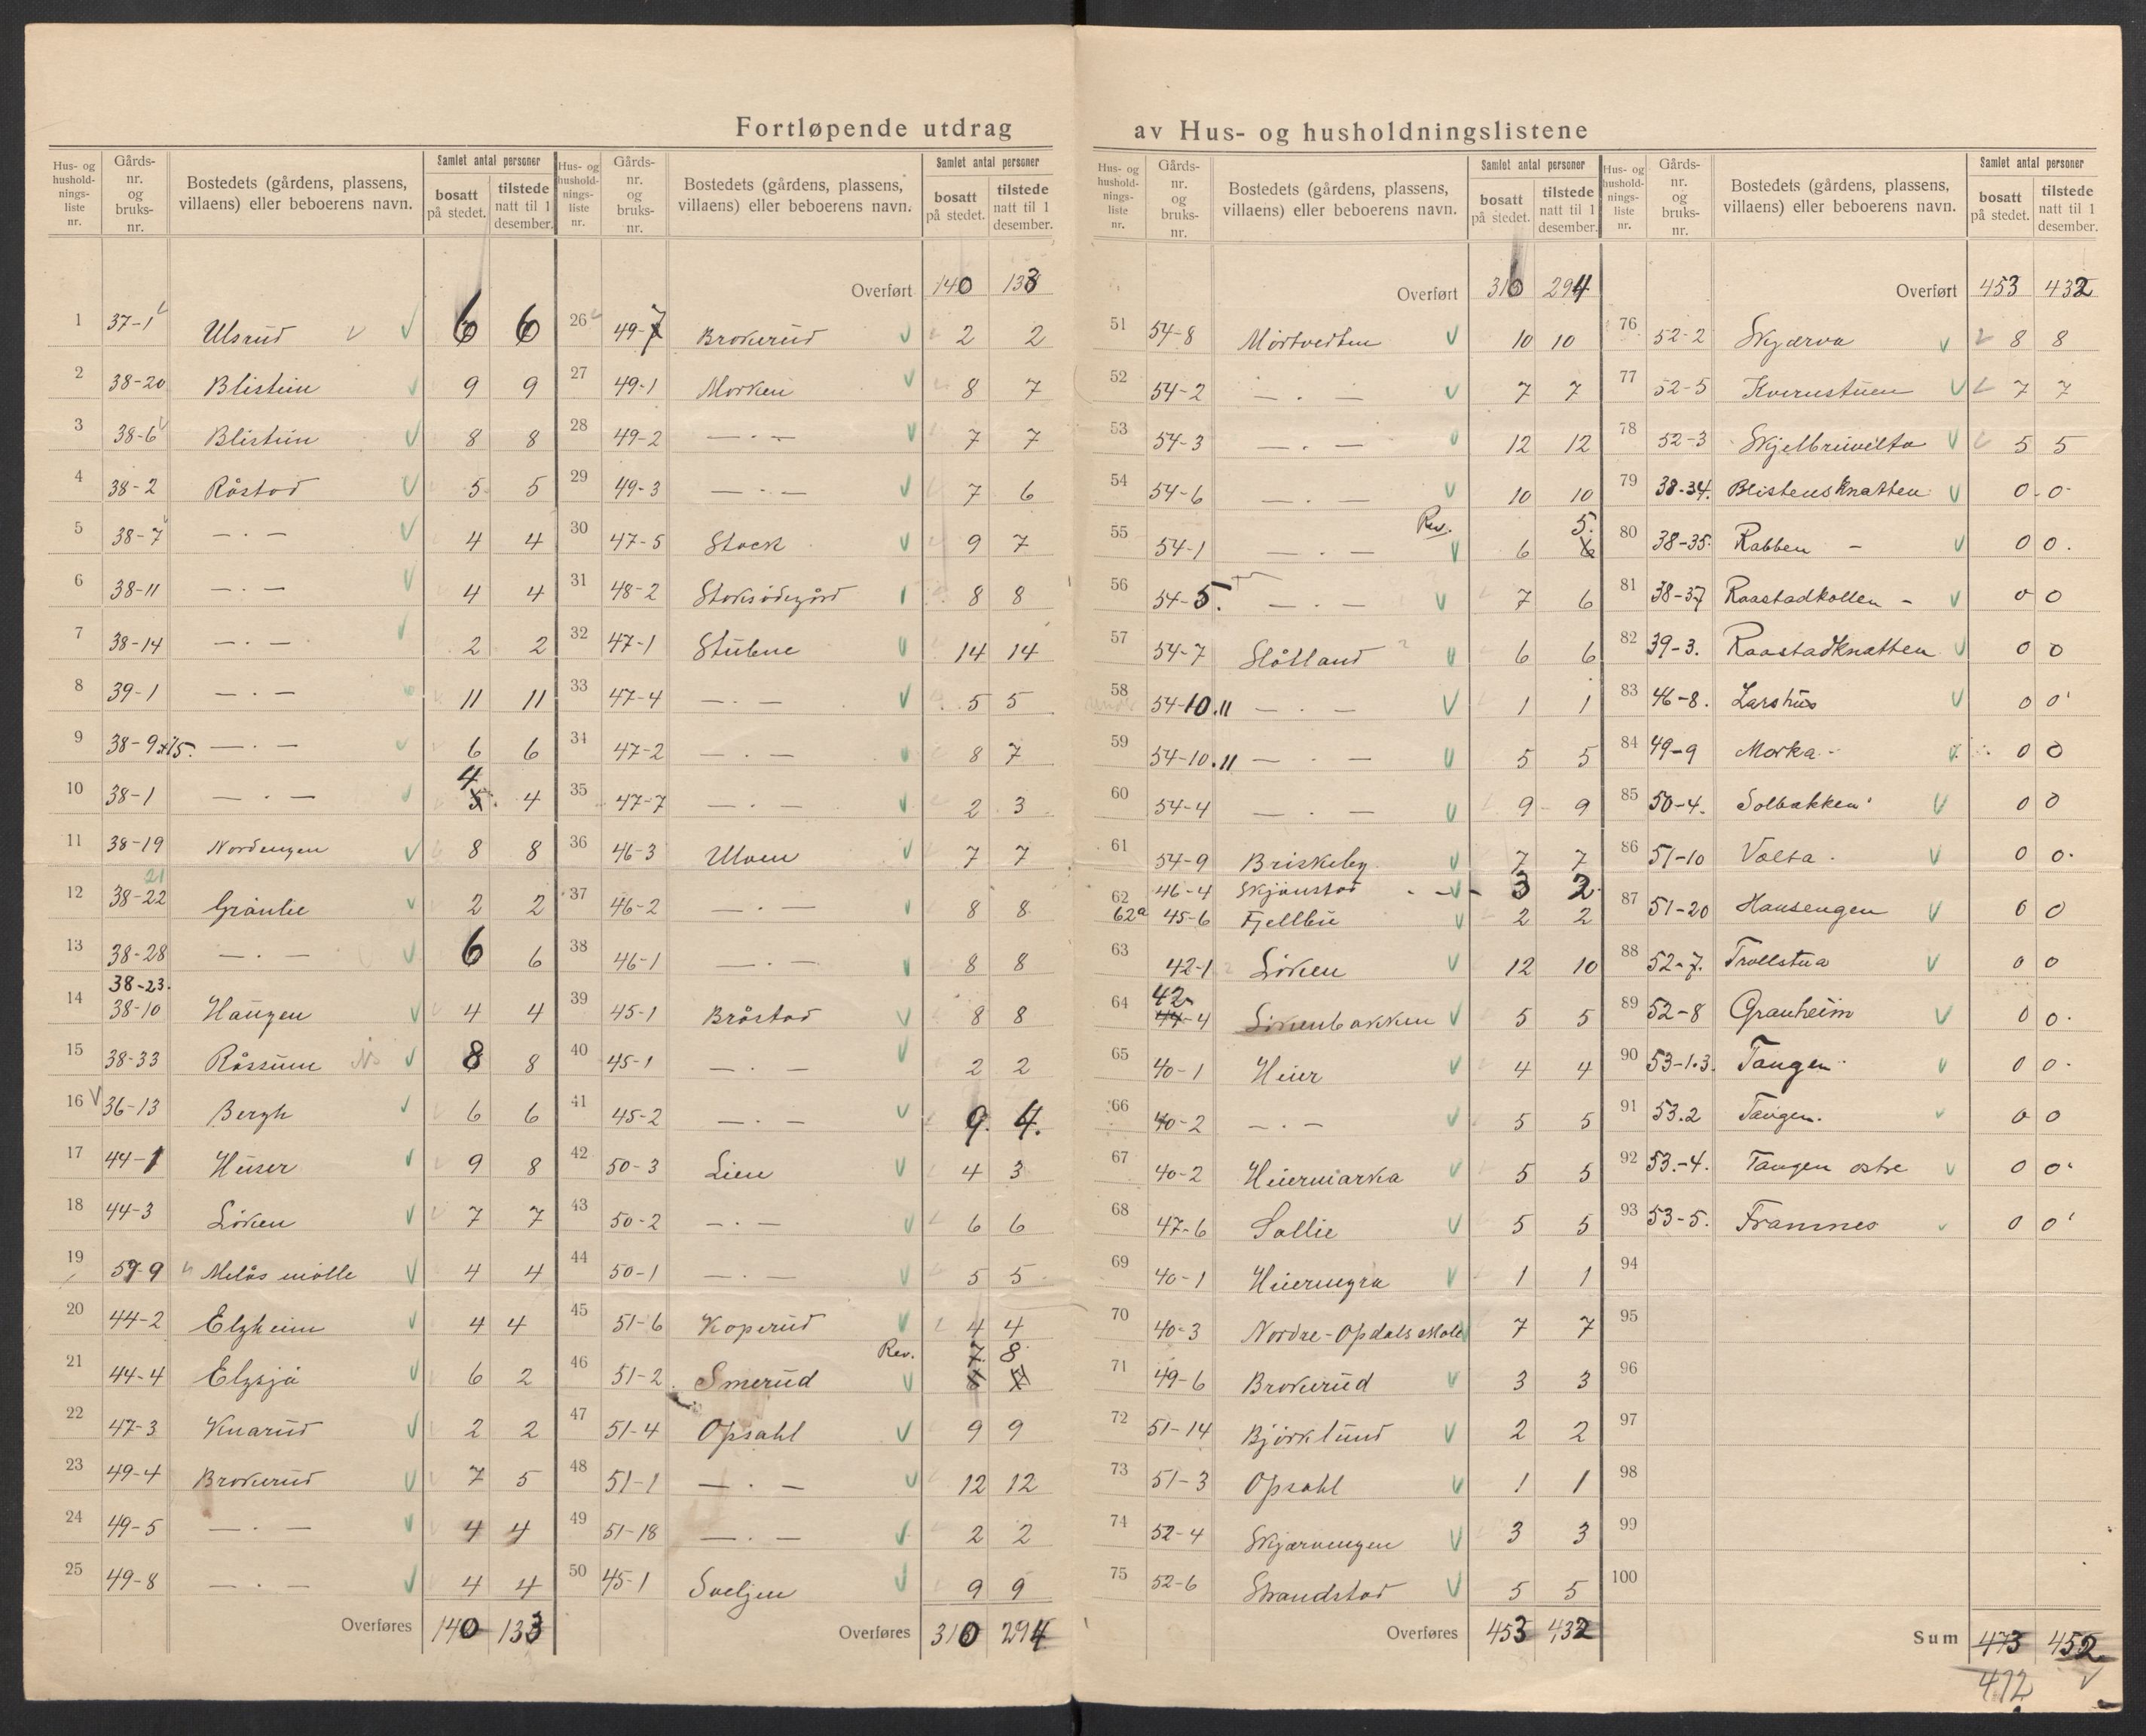 Fortløpende utdrag av Hus- og husholdningslistene
Hus- og husholdnings- liste nr. | Gårds- nr. og bruks- nr. | Bostedets (gårdens, plassens, villaens) eller beboerens navn. | Samlet antal personer bosatt på stedet. | tilstede natt til 1 desember.
1 37-1 Ulsrud 6 6
2 38-20 Blisten 9 9
3 38-6 Blisten 8 8
4 38-2 Råstad 5 5
5 38-7 — . — 4 4
6 38-11 — . — 4 4
7 38-14 — . — 2 2
8 39-1 — . — 11 11
9 38-9+15. — . — 6 6
10 38-1 — . — 4 4
11 38-19 Nordengen 8 8
21
12 38-22 Grånlie 2 2
13 38-28 — . — 6 6
38-23.
14 38-10 Haugen 4 4
15 38-33 Råssum 8 8
16 36-13 Bergh 6 6
17 44-1 Huser 9 8
18 44-3 Löken 7 7
19 57-9 Melås mölle 4 4
20 44-2 Elgheim 4 4
21 44-4 Elgsjå 6 2
22 47-3 Knarud 2 2
23 49-4 Brokerud 7 5
24 49-5 — . — 4 4
25 49-8 — . — 4 4
Overføres 140 133
Hus- og husholdnings- liste nr. | Gårds- nr. og bruks- nr. | Bostedets (gårdens, plassens, villaens) eller beboerens navn. | Samlet antal personer bosatt på stedet. | tilstede natt til 1 desember.
Overført 140 133
26 49-7 Brokerud 2 2
27 49-1 Morken 8 7
28 49-2 — . — 7 7
29 49-3 — . — 7 6
30 47-5 Stock 9 7
31 48-2 Stoksödegård 8 8
32 47-1 Stubne 14 14
33 47-4 — . — 5 5
34 47-2 — . — 8 7
35 47-7 — . — 2 3
36 46-3 Ulven 7 7
37 46-2 — . — 8 8
38 46-1 — . — 8 8
39 45-1 Bråstad 8 8
40 45-1 — . — 2 2
41 45-2 — . — 9. 4.
42 50-3 Lien 4 3
43 50-2 — . — 6 6
44 50-1 — . — 5 5
45 51-6 Koperud 4 4
Rev. 7. 8
46 51-2 Smerud
47 51-4 Opsahl 9 9
48 51-1 — . — 12 12
49 51-18 — . — 2 2
50 45-1 Sveljen 9 9
Overføres 310 294
Hus- og husholdnings- liste nr. | Gårds- nr. og bruks- nr. | Bostedets (gårdens, plassens, villaens) eller beboerens navn. | Samlet antal personer bosatt på stedet. | tilstede natt til 1 desember.
Overført 310 294
51 54-8 Mörtvedten 10 10
52 54-2 — . — 7 7
53 54-3 — . — 12 12
54 54-6 — . — 10 10
Rev. 5.
55 54-1 — . — 6 6
56 54-5. — . — 7 6
57 54-7 Slåtland 6 6
58 54-10.11 — . — 1 1
59 54-10.11 — . — 5 5
60 54-4 — . — 9 9
61 54-9 Briskeby 7 7
62 46-4 Skjönstad 3 2
62a 45-6 Fjellbu 2 2
63 42-1 Löken 12 10
42-
64 44-4 Lökenbakken 5 5
65 40-1 Heier 4 4
66 40-2 — . — 5 5
67 40-2 Heiermarka 5 5
68 47-6 Sollie 5 5
69 40-1 Heiermyra 1 1
70 40-3 Nordre-Opdals skole 7 7
71 49-6 Brokerud 3 3
72 51-14 Björklund 2 2
73 51-3 Opsahl 1 1
74 52-4 Skjærvengen 3 3
75 52-6 Strandstad 5 5
Overføres 453 432
Hus- og husholdnings- liste nr. | Gårds- nr. og bruks- nr. | Bostedets (gårdens, plassens, villaens) eller beboerens navn. | Samlet antal personer bosatt på stedet. | tilstede natt til 1 desember.
Overført 453 432
76 52-2 Skjærva 8 8
77 52-5 Kvernstuen 7 7
78 52-3 Skjelbreidvelta 5 5
79 38-34. Blistensknatten 0 - 0
80 38-35. Rabben - 0 0.
81 38-37 Raastadkollen - 0 0
82 39-3. Raastadknatten 0 0
83 46-8. Larshus 0 0
84 49-9 Morka - 0 0
85 50-4. Solbakken 0 0
86 51-10 Volla. 0 0.
87 51-20 Hansengen 0 0
88 52-7. Trollstua 0 0
89 52-8 Granheim 0 0.
90 53-1.3. Tangen 0 0.
91 53.2 Tangen. 0 0
92 53.-4. Tangen østre 0 0
93 53-5. Framnes 0 0
94
95
96
97
98
99
100
Sum 473 452
472